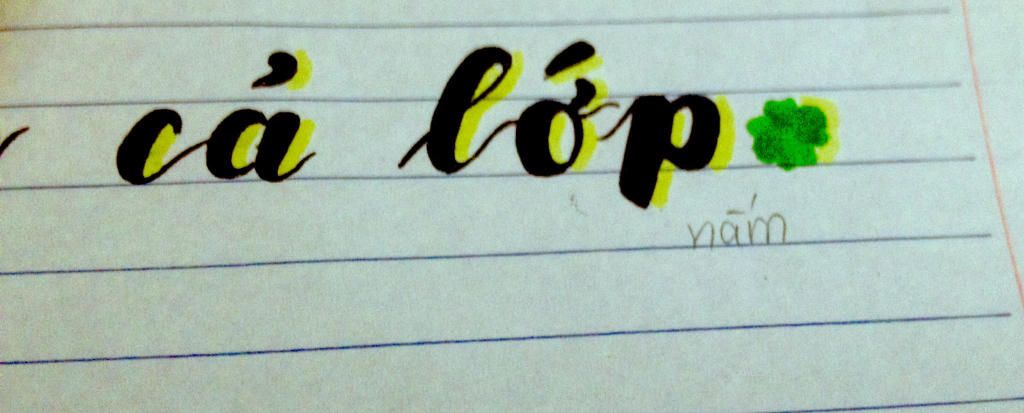 cả lớp
nấm